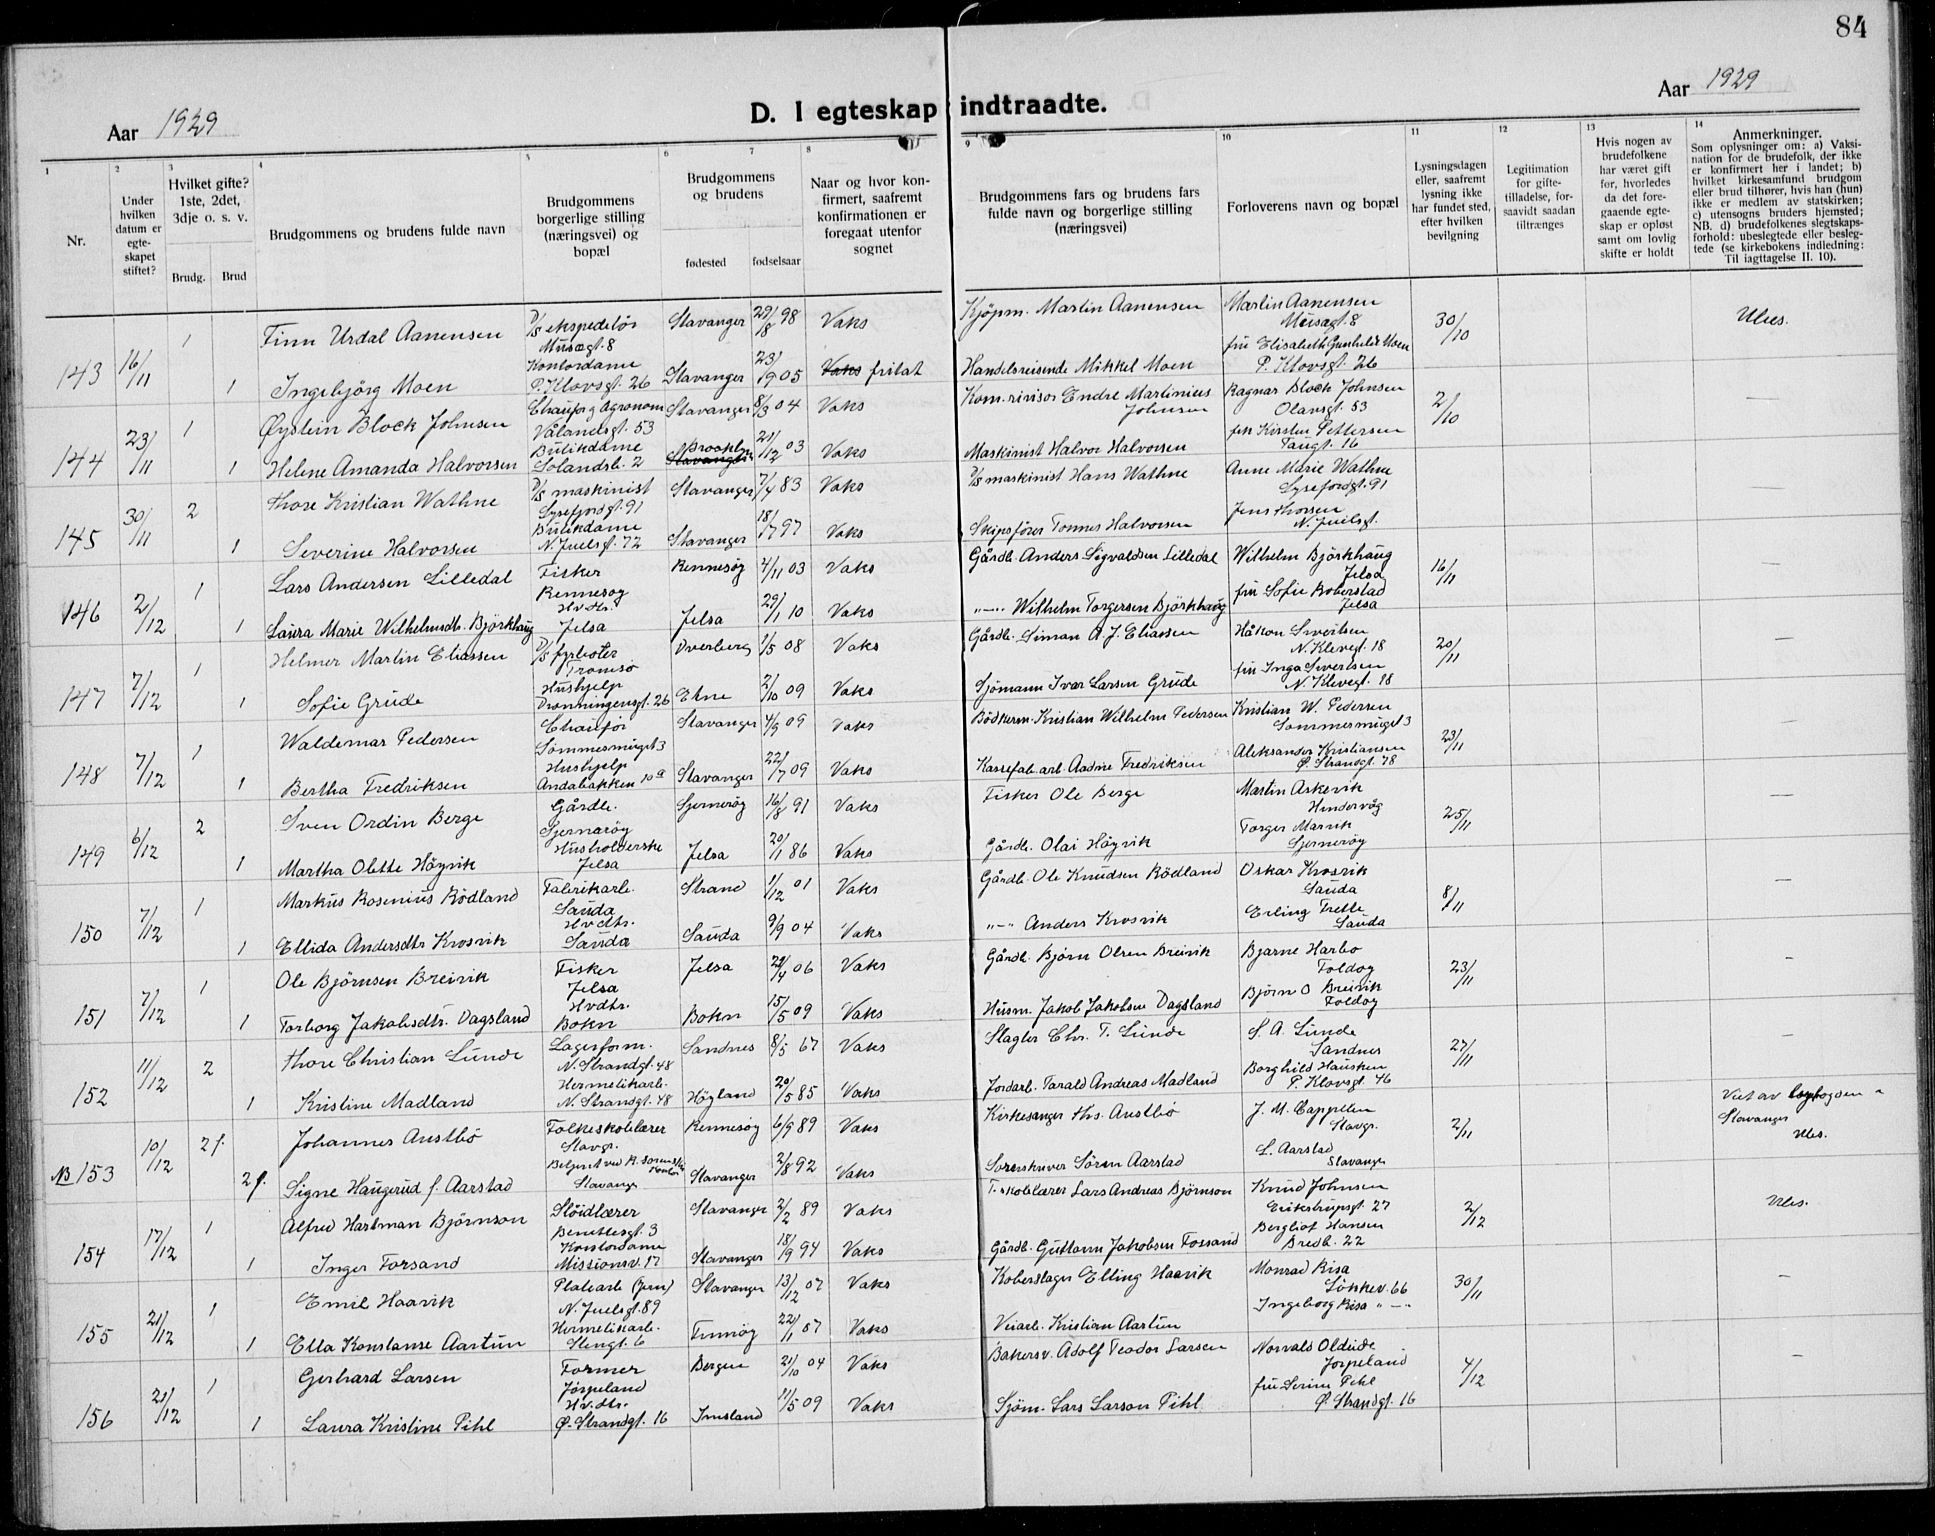 84
Aar 1929
D. I egteskap indtraadte.
Aar 1929
1 2 3 4 5 6 7 8 9 10 11 12 13 14
Nr.
Under hvilken datum er egteskapet stiftet?
Hvilket gifte? 1ste, 2det, 3dje o. s. v.
Brudg. Brud
Brudgommens og brudens fulde navn
Brudgommens borgerlige stilling (næringsvei) og bopæl
Brudgommens og brudens
fødested fødselsaar
Naar og hvor konfirmert, saafremt konfirmationen er foregaat utenfor sognet
Brudgommens fars og brudens fars fulde navn og borgerlige stilling (næringsvei)
Forloverens navn og bopæl
Lysningsdagen eller, saafremt lysning ikke har fundet sted, efter hvilken bevilgning
Legitimation for giftetilladelse, forsaavidt saadan tiltrænges
Hvis nogen av brudefolkene har været gift før, hvorledes da det foregaaende egteskap er opløst samt om lovlig skifte er holdt
Anmerkninger.
Som oplysninger om: a) Vaksination for de brudefolk, der ikke er konfirmert her i landet; b) hvilket kirkesamfund brudgom eller brud tilhører, hvis han (hun) ikke er medlem av statskirken; c) utensogns bruders hjemsted; NB. d) brudefolkenes slegtskapsforhold: ubeslegtede eller beslegtede (se kirkebokens indledning: Til iagttagelse II. 10).
143 16/11 1 Finn Urdal Aanensen D/S ekspeditør Musægt. 8 Stavanger 29/8 98 Vaks Kjøpm. Martin Aanensen Martin Aanensen Musægt. 8 30/10 Ubes.
1 Ingebjörg Moen Kontordame P. Klovsgt. 26 Stavanger 23/1 1905 Vaks fritat Handelsreisende Mikkel Moen fru Elisabeth Gunhild Moen P. Klovsgt. 26
144 23/11 1 Øystein Block Johnsen Chauför og Agronom Vålandsgt. 53 Stavanger 8/3 04 Vaks Kom. rivisor Endre Martinius Johnsen Ragnar Block Johnsen Olavsgt. 53 2/10 —
1 Helene Amanda Halvorsen Butikdame Solandsb. 2 Stavanger Brookl. 21/12 03 Vaks Maskinist Halvor Halvorsen frk Kirsten Pettersen Taugt. 16
145 30/11 2 Thore Kristian Wathne D/S maskinist Lysefjordgt. 91 Stavanger 7/4 83 Vaks D/S maskinist Hans Wathne Anne Marie Wathne Lysefjordgt. 91 —
1 Severine Halvorsen Butikdame N. Juelsgt. 72 Stavanger 18/1 97 Vaks Skipsförer Tonnes Halvorsen Jens Thorsen N. Juelsgt.
146 2/12 1 Lars Andersen Lilledal Fisker Rennesøy Rennesøy 4/11 03 Vaks Gårdb. Anders Sigvaldsen Lilledal Wilhelm Björkhaug Jelsa 16/11 —
1 Laura Marie Wilhelmsdtr. Björkhaug Hv.dtr. Jelsa Jelsa 29/1 10 Vaks "—" Wilhelm Torgersen Björkhaug fru Sofie Boberstad Jelsa
147 7/12 1 Helmer Martin Eliassen D/S fyrbøter Tromsø Overberg 1/5 08 Vaks Gårdb. Simon A. J. Eliassen Håkon Sivertsen N. Klevegt. 18 20/11 —
1 Sofie Grude Hushjelp Dronningensgt. 26 Etne 2/10 09 Vaks Sjömann Ivar Larsen Grude fru Inga Sivertsen N. Klevegt. 18
148 7/12 1 Waldemar Pedersen Chauför Sommersmuget 3 Stavanger 4/9 09 Vaks Bödkerm. Kristian Wilhelm Pedersen Kristian W. Pedersen Sommersmuget 3 23/11 —
1 Bertha Fredriksen Hushjelp Andabakken 10a Stavanger 22/7 09 Vaks Kassefab. arb. Aadne Fredriksen Aleksander Kristiansen Ø. Strandgt. 78
149 6/12 2 Sven Ordin Berge Gårdb. Sjernarøy Sjernerøy 16/8 91 Vaks Fisker Ole Berge Martin Askevik Hindervåg 25/11 —
1 Martha Olette Høyvik Husholderske Jelsa Jelsa 20/1 86 Vaks Gårdb. Olai Høyvik Torger Marvik Sjernerøy
150 7/12 1 Markus Rosenius Rödland Fabrikarb. Sauda Strand 1/12 01 Vaks Gårdb. Ole Knudsen Rödland Oskar Krosvik Sauda 8/11 —
1 Ellida Andersdtr Krosvik Hvdtr. Sauda Sauda 9/9 04 Vaks "—" Anders Krosvik Erling Tretle Sauda
151 7/12 1 Ole Björnsen Breivik Fisker Jelsa Jelsa 21/4 06 Vaks Gårdb. Bjørn Olsen Breivik Bjarne Harbo Foldøy 23/11 —
1 Torborg Jakobsdtr. Dagsland Hvdtr. Bokn Bokn 15/5 09 Vaks Husm. Jakob Jakobsen Dagsland Bjørn O Breivik Foldøy
152 11/12 2 Thore Christian Lunde Lagerform. N. Strandgt. 48 Sandnes 8/5 67 Vaks Slagter Chr. T. Lunde S. A. Lunde Sandnes 27/11 —
1 Kristine Madland Hermetikarb. N. Strandgt. 48 Höyland 20/5 85 Vaks Jordarb. Tarald Andreas Madland Borghild Hausken P. Klovsgt. 46
NB 153 10/12 2 f. Johannes Austbö Folkeskolelærer Stavgr. Rennesöy 6/9 89 Vaks Kirkesanger Ths. Austbö J. M. Cappelen Stavgr. 2/11 Viet av byfogden i Stavanger Ubes.
2 f. Signe Haugerud f. Aarstad Stavanger Stavanger 2/8 92 Vaks Sorenskriver Sören Aarstad L. Aarstad Stavanger
154 17/12 1 Alfred Hartman Björnson Slöidlærer Benettesgt. 3 Stavanger 2/2 89 Vaks F. skolelærer Lars Andreas Björnson Knud Johnsen Erikstrupsgt. 27 2/12 Ubes.
1 Inger Forsand Kontordame Missionsv. 17 Stavanger 18/9 94 Vaks Gårdb. Guttorm Jakobsen Fossand Bergliot Hansen Bredb. 22
155 21/12 1 Emil Haavik Platearb (jern) N. Juelsgt. 89 Stavanger 13/12 07 Vaks Koberslager Elling Haavik Monrad Risa Løkkev. 66 30/11 —
1 Ella Konstanse Aartun Hermetikarb. Stengt. 6 Finnøy 22/1 07 Vaks Veiarb. Kristian Aartun Ingeborg Risa "—"
156 21/12 1 Gerhard Larsen Former Jørpeland Bergen 21/10 04 Vaks Bakersv. Adolf Teodor Larsen Norvals Oldeide Jørpeland 4/12 —
1 Laura Kristine Pihl Hv.dtr. Ø. Strandgt. 16 Imsland 11/5 09 Vaks Sjøm. Lars Larson Pihl fru Serine Pihl Ø. Strandgt. 16